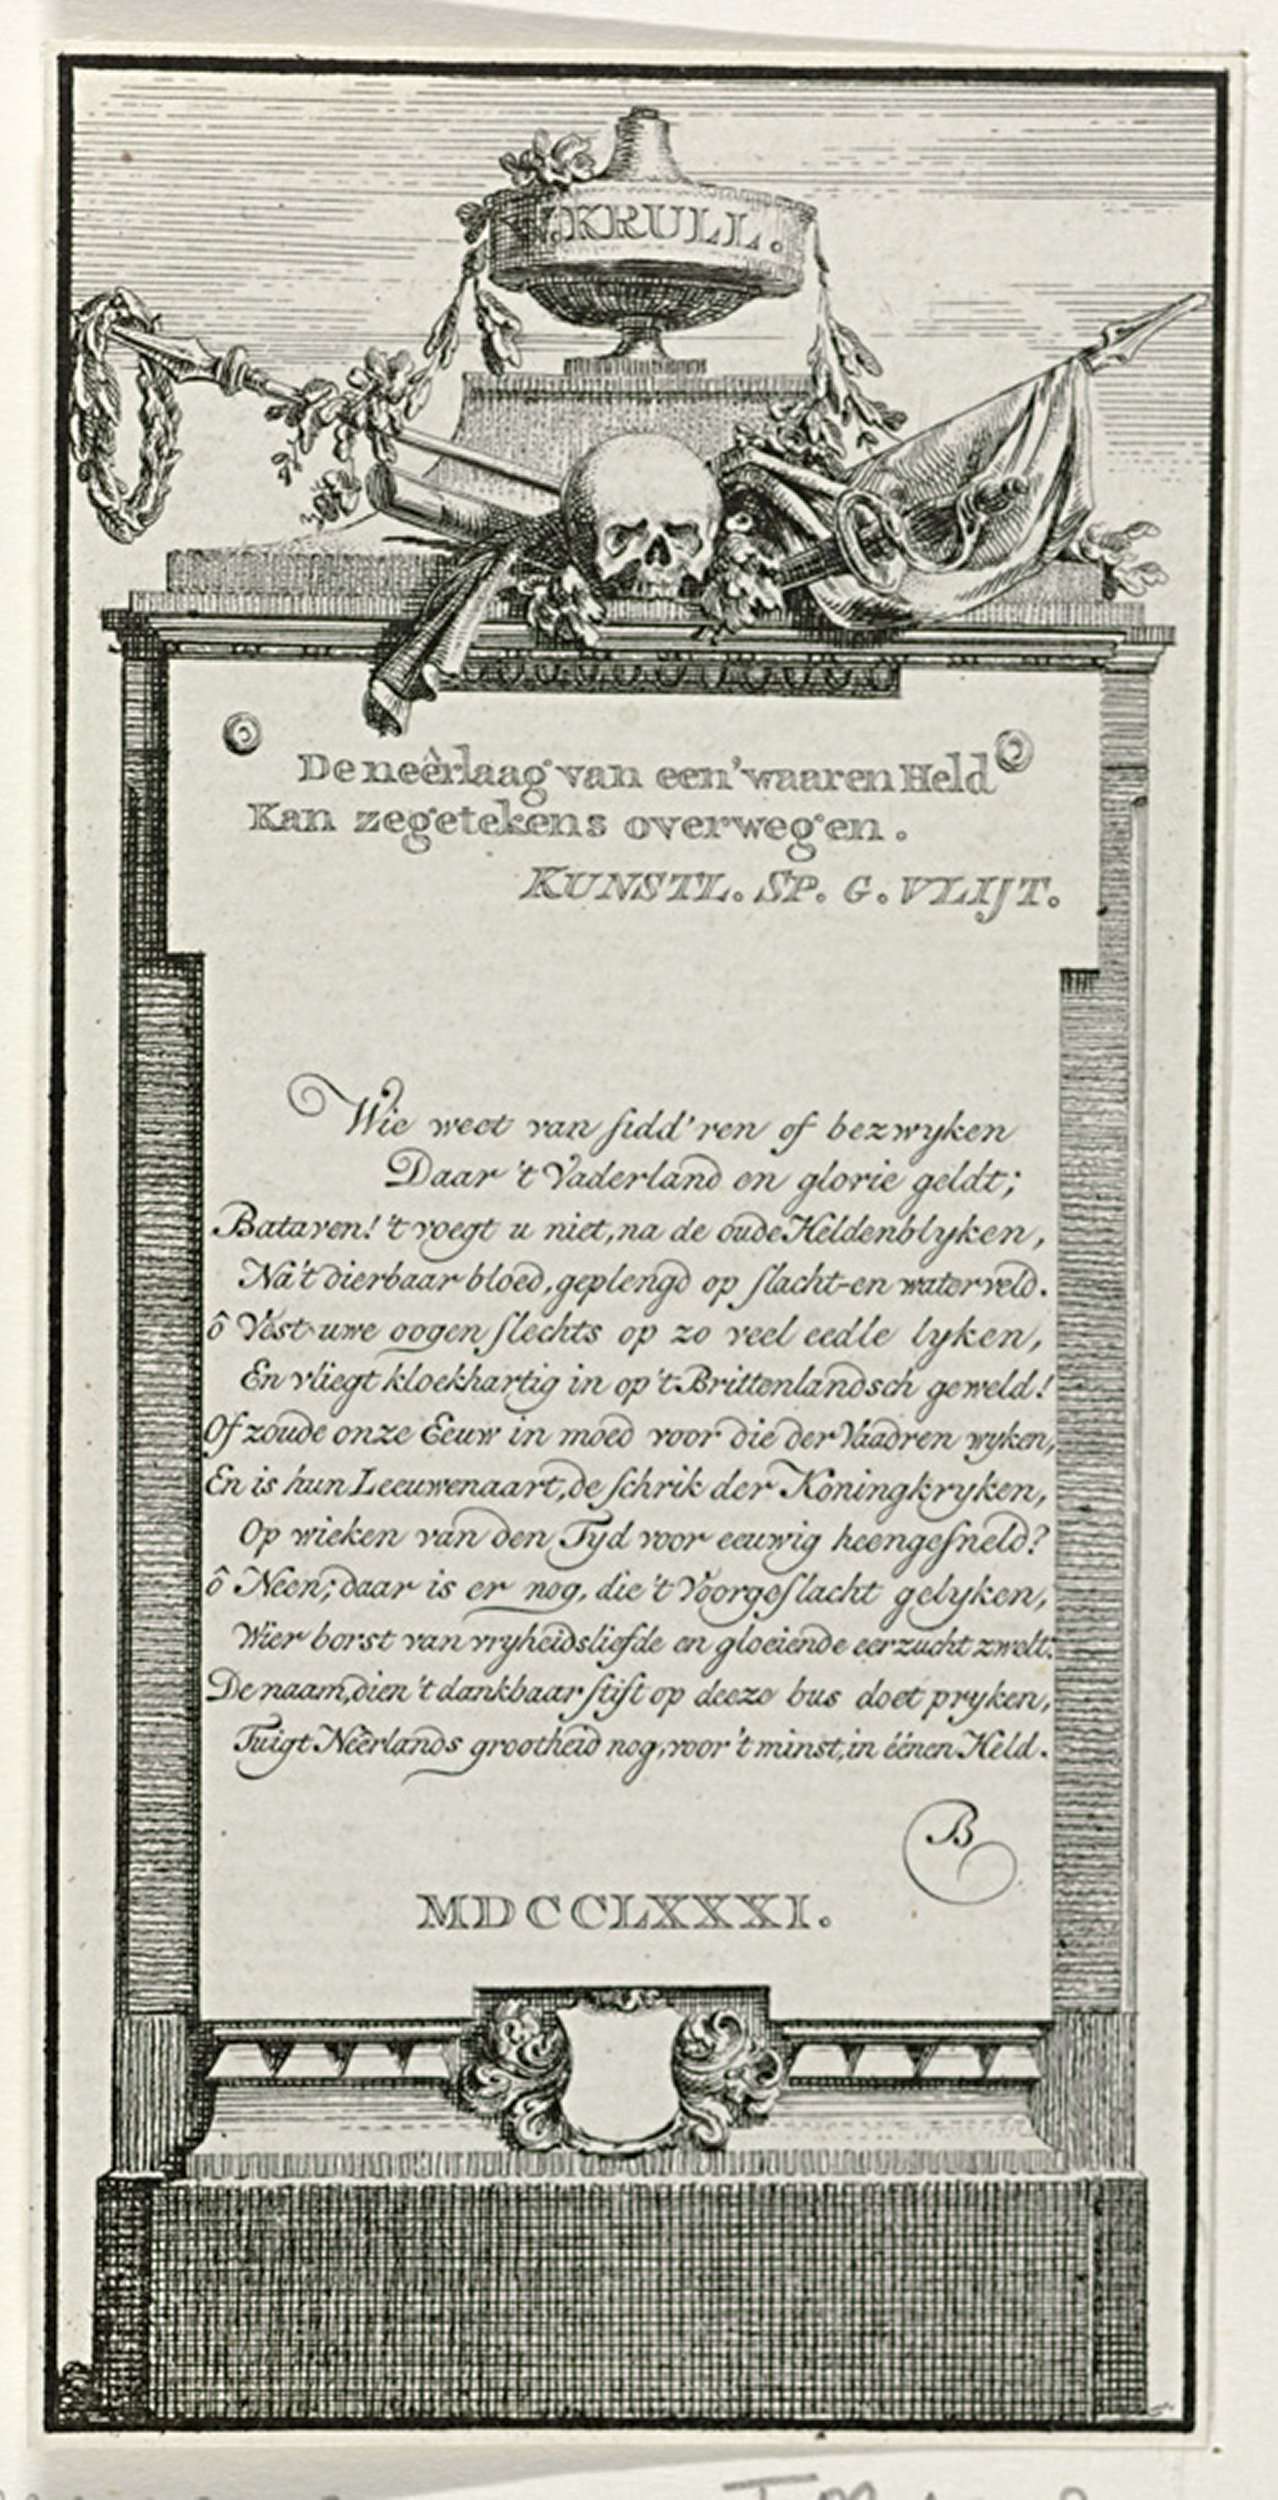 W. KRULL.
De neêrlaag van een' waaren Held
Kan zegetekens overwegen.
KUNSTL. SP. G. VLIJT.
Wie weet van sidd'ren of bezwyken
Daar 't Vaderland en glorie geldt;
Bataven! 't voegt u niet, na de oude Heldenblyken,
Nà 't dierbaar bloed, geplengd op slacht-en waterveld.
ô Vest uwe oogen slechts op zo veel eedle lyken,
En vliegt kloekhartig in op 't Brittenlandsch geweld!
Of zoude onze Eeuw in moed voor die der Vaadren wyken,
En is hun Leeuwenaart, de schrik der Koningkryken,
Op wieken van den Tyd voor eeuwig heengesneld?
ô Neen; daar is er nog, die 't Voorgeslacht gelyken,
Wier borst van vryheidsliefde en gloeiende eerzucht zwelt:
De naam, dien 't dankbaar stift op deeze bus doet pryken,
Tuigt Neêrlands grootheid nog, voor 't minst, in éénen Held.
B
MDCCLXXXI.